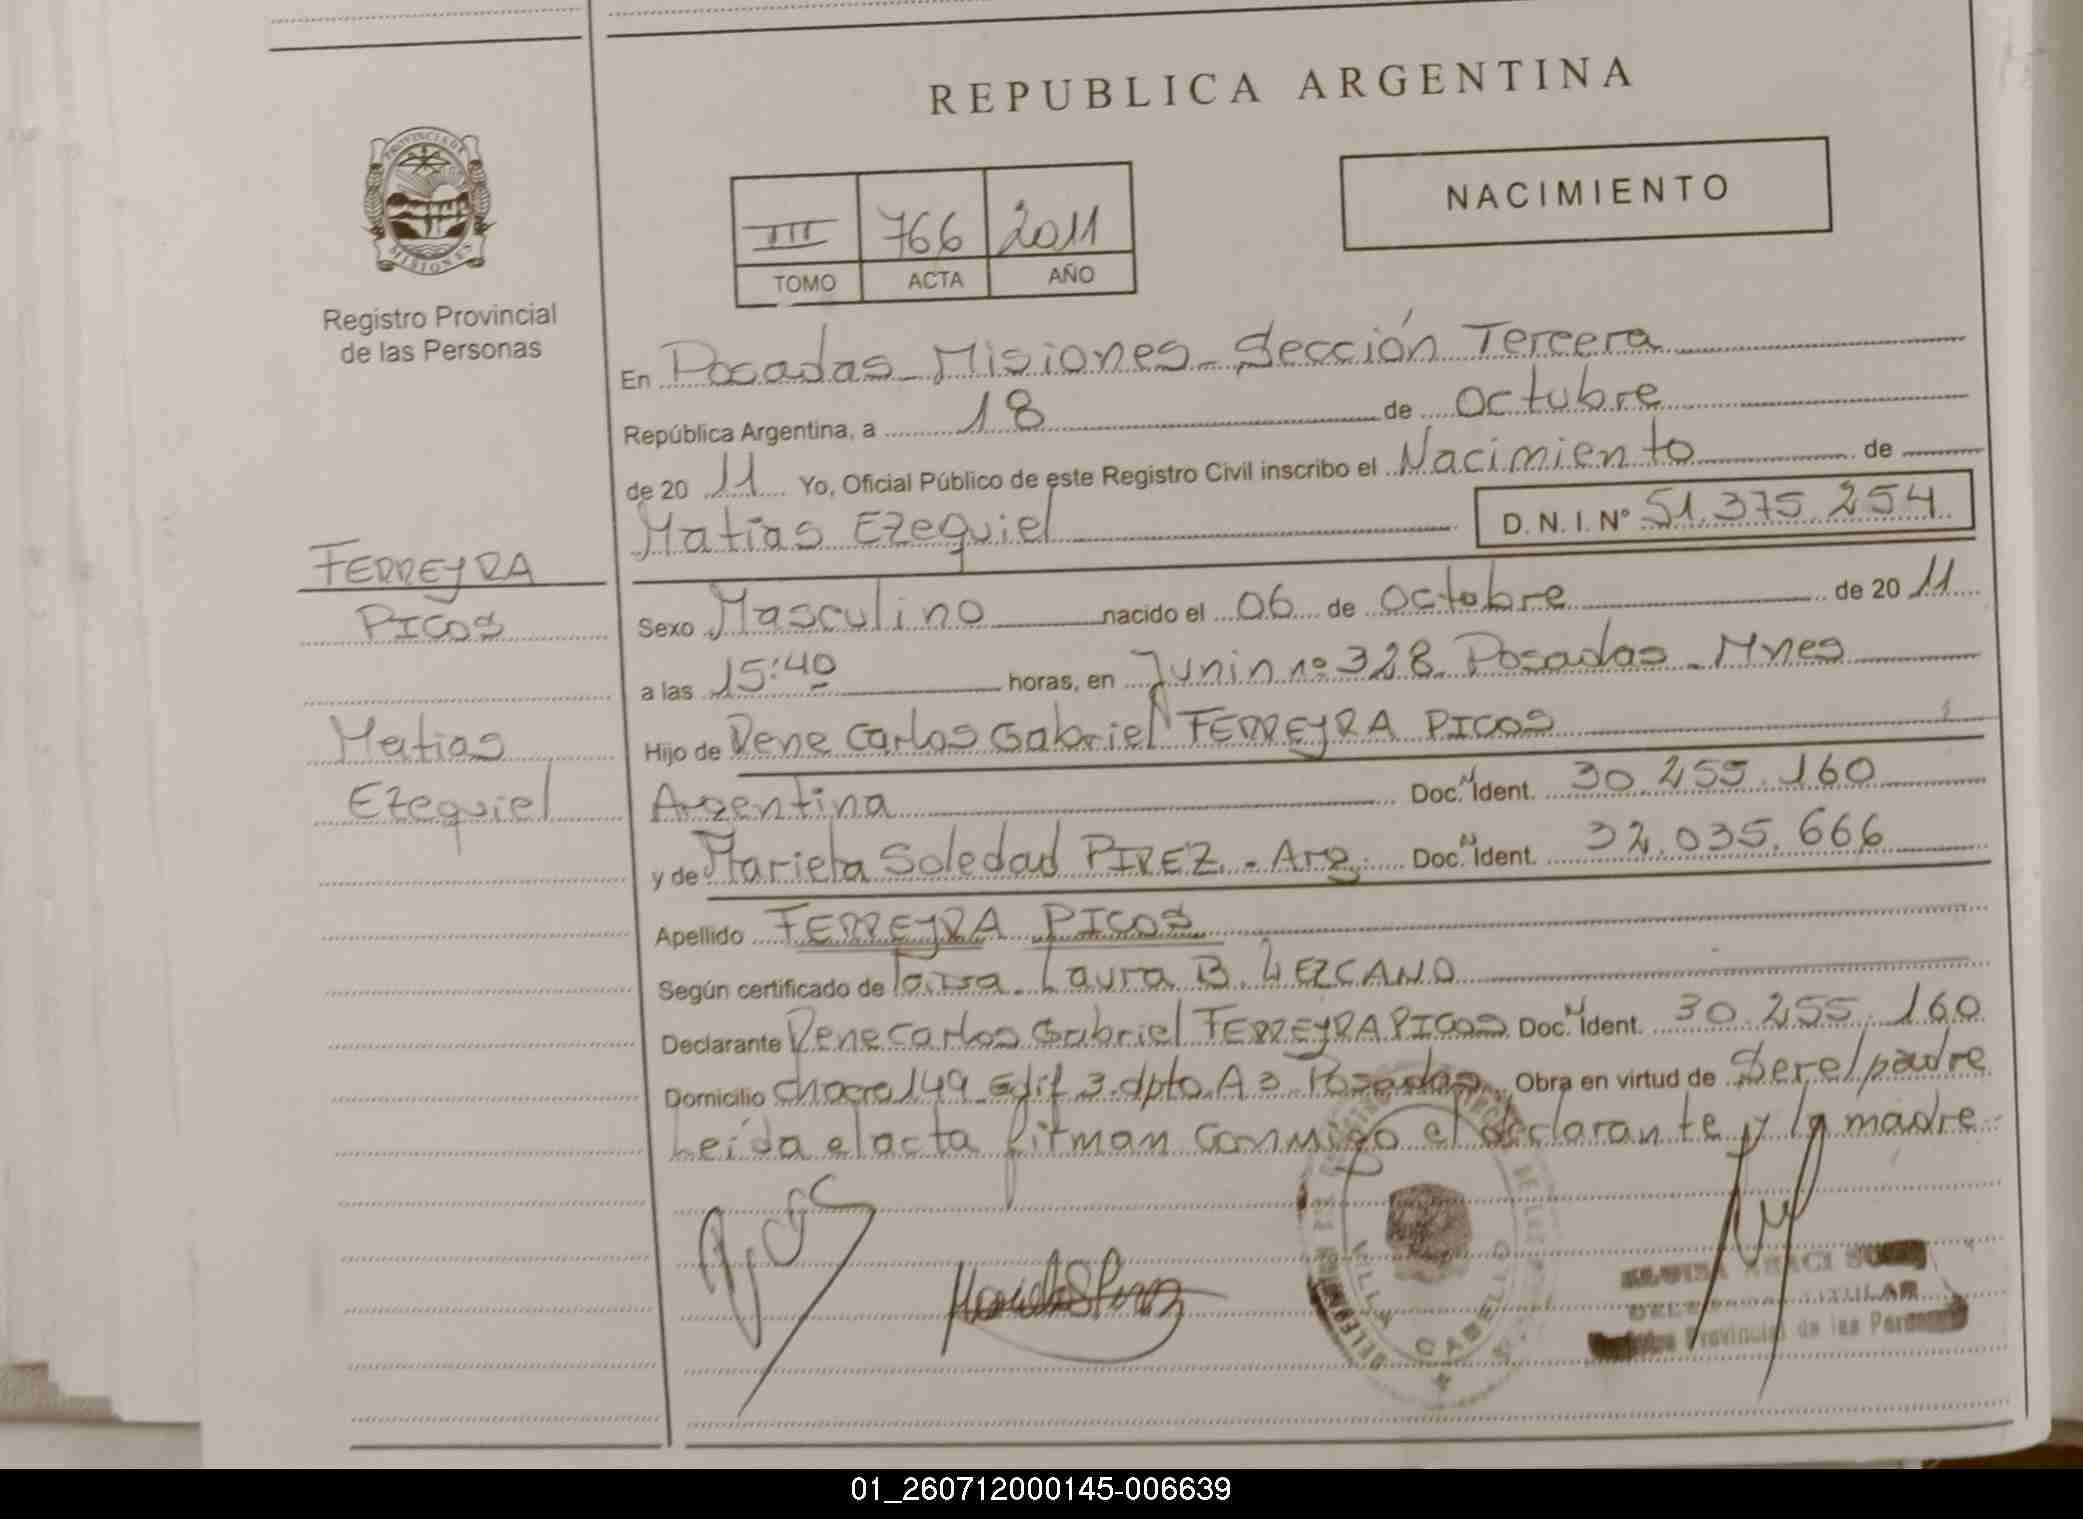 REPUBLICA ARGENTINA
PROVINCIA DE MISIONES
Registro Provincial
de las Personas
III 766 2011
TOMO ACTA AÑO
NACIMIENTO
En Posadas - Misiones - Sección Tercera
República Argentina, a 18 de Octubre
de 20 11 Yo, Oficial Público de este Registro Civil inscribo el Nacimiento de
Matias Ezequiel D. N. I. Nº 51.375.254
FERREYRA
PICOS
Matias
Ezequiel
Sexo Masculino nacido el 06 de Octubre de 20 11
a las 15:40 horas, en Junin nº 328 Posadas - Mnes
Hijo de Rene Carlos Gabriel FERREYRA PICOS
Argentina Doc. Ident. 30.255.160
y de Mariela Soledad PIREZ - Arg. Doc. Ident. 32.035.666
Apellido FERREYRA PICOS
Según certificado de Laura B. LEZCANO
Declarante Rene Carlos Gabriel FERREYRA PICOS Doc. Ident. 30.255.160
Domicilio chacra 149 Edif 3 dpto A 3 Posadas Obra en virtud de Ser el padre
Leída el acta firman conmigo el declarante y la madre
VILLA CABELLO
TITULAR
Provincial de las
01_260712000145-006639